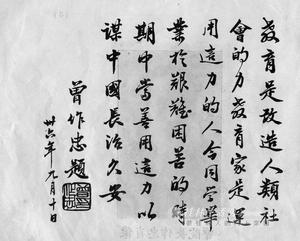 教育是改造人類社
會的力教育家是運
用這力的人今同學畢
業於艱難困苦的時
期中當善用這力以
謀中國長治久安
曾作忠題
卅六年九月十日